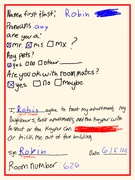 Name first/last: Robin
Pronouns: any
a/
mr. ms. mx?
Any pets?
yes no other
Are you ok with roommates?
yes no maybe
I, Robin agree to treat my apartment, my
neighbours, their apartment, and the Keyfur with
respect or the Keyfur can
or kick me out of the building.
Sign: Robin Date: 6/5/23
Room number: 626